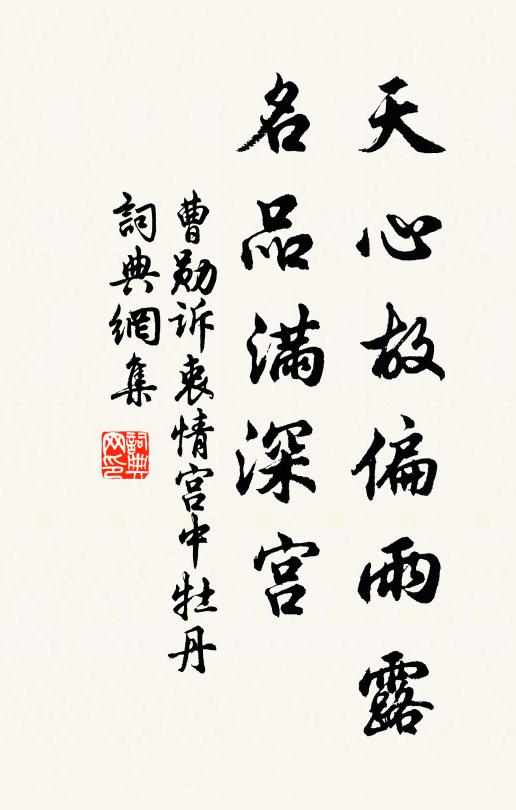 天心故偏雨露
名品满深宫
曹勋诉衷情宫中牡丹
詞典網集
詞典网印